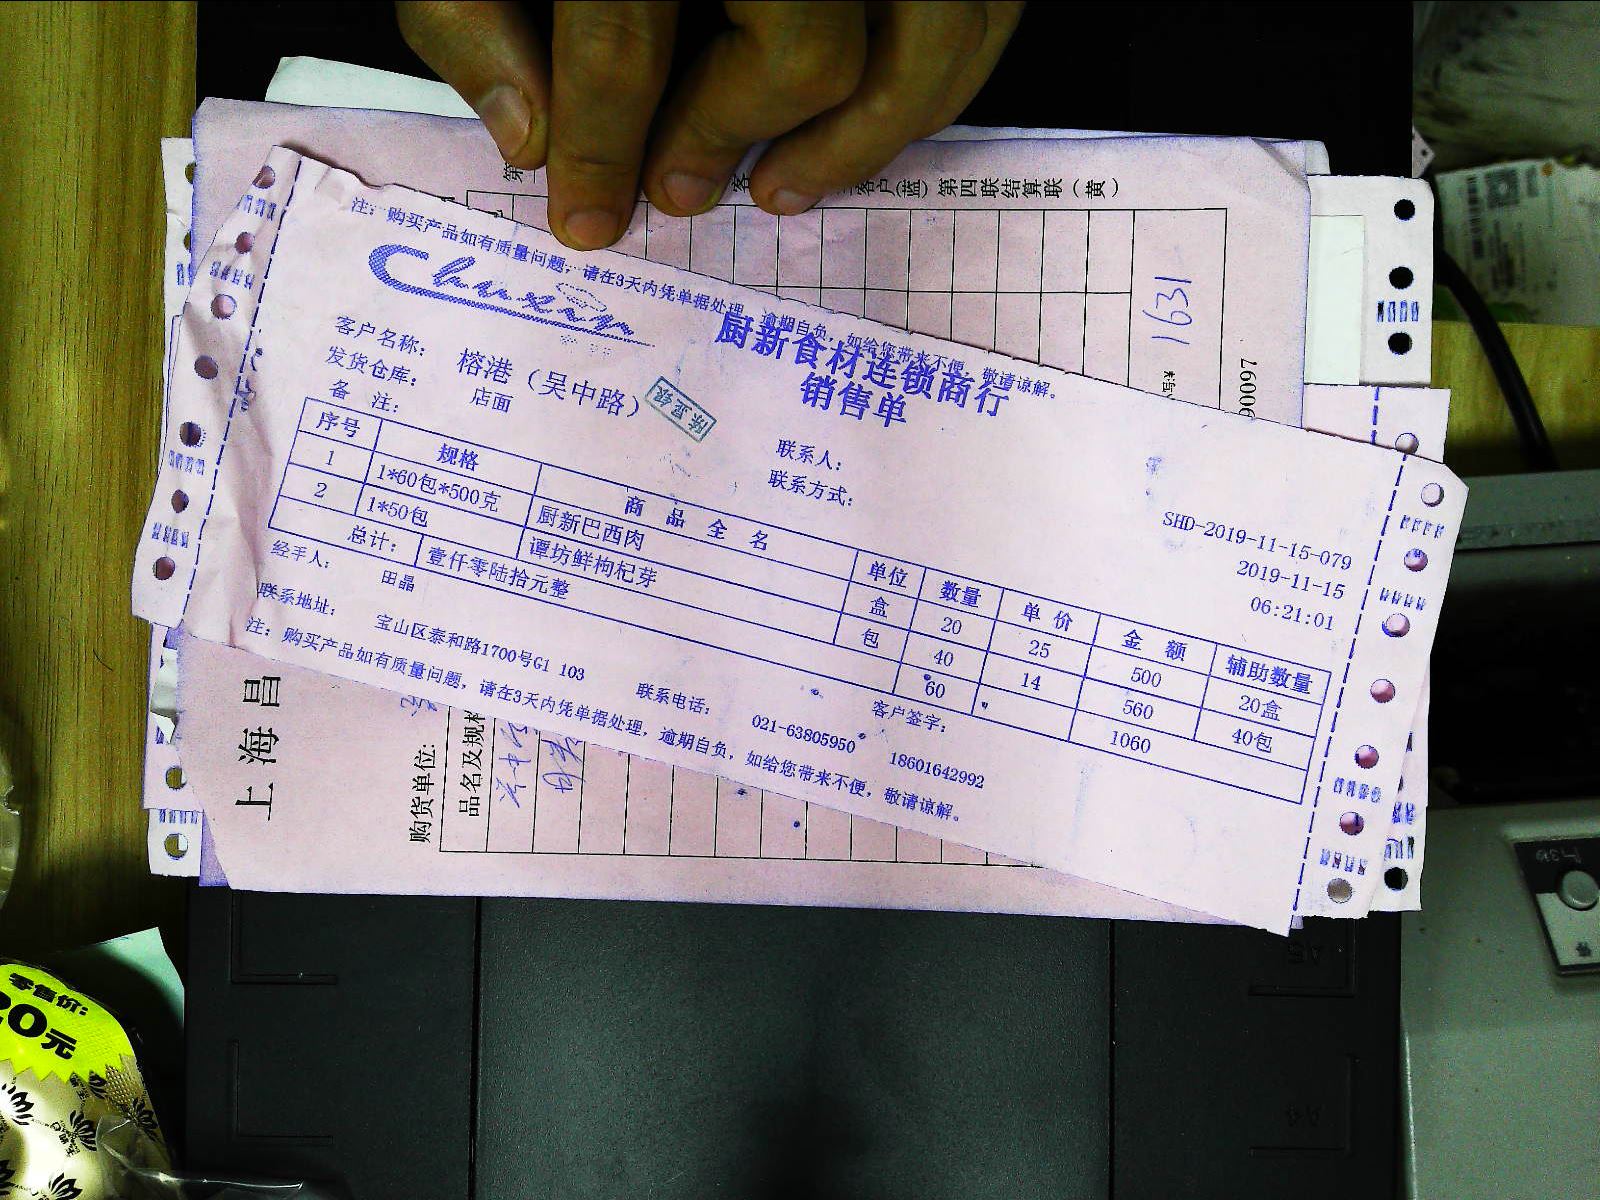 注：购买产品如有质量问题，请在3天内凭单据处理，逾期自负，如给您带来不便，敬请谅解。
Chuxin
厨新食材连锁商行
销售单
客户名称： 榕港（吴中路）
发货仓库： 店面
备 注：
陈显银
联系人：
联系方式：
SHD-2019-11-15-079
2019-11-15
06:21:01
序号 规格 商 品 全 名 单位 数量 单 价 金 额 辅助数量
1 1*60包*500克 厨新巴西肉 盒 20 25 500 20盒
2 1*50包 谭坊鲜枸杞芽 包 40 14 560 40包
总计： 壹仟零陆拾元整 60 1060
经手人： 田晶 客户签字：
联系地址： 宝山区泰和路1700号G1 103 联系电话： 021-63805950 18601642992
注：购买产品如有质量问题，请在3天内凭单据处理，逾期自负，如给您带来不便，敬请谅解。
客户(蓝) 第四联结算联（黄）
1631
90097
上海昌
购货单位:
品名及规格
零售价：
20元